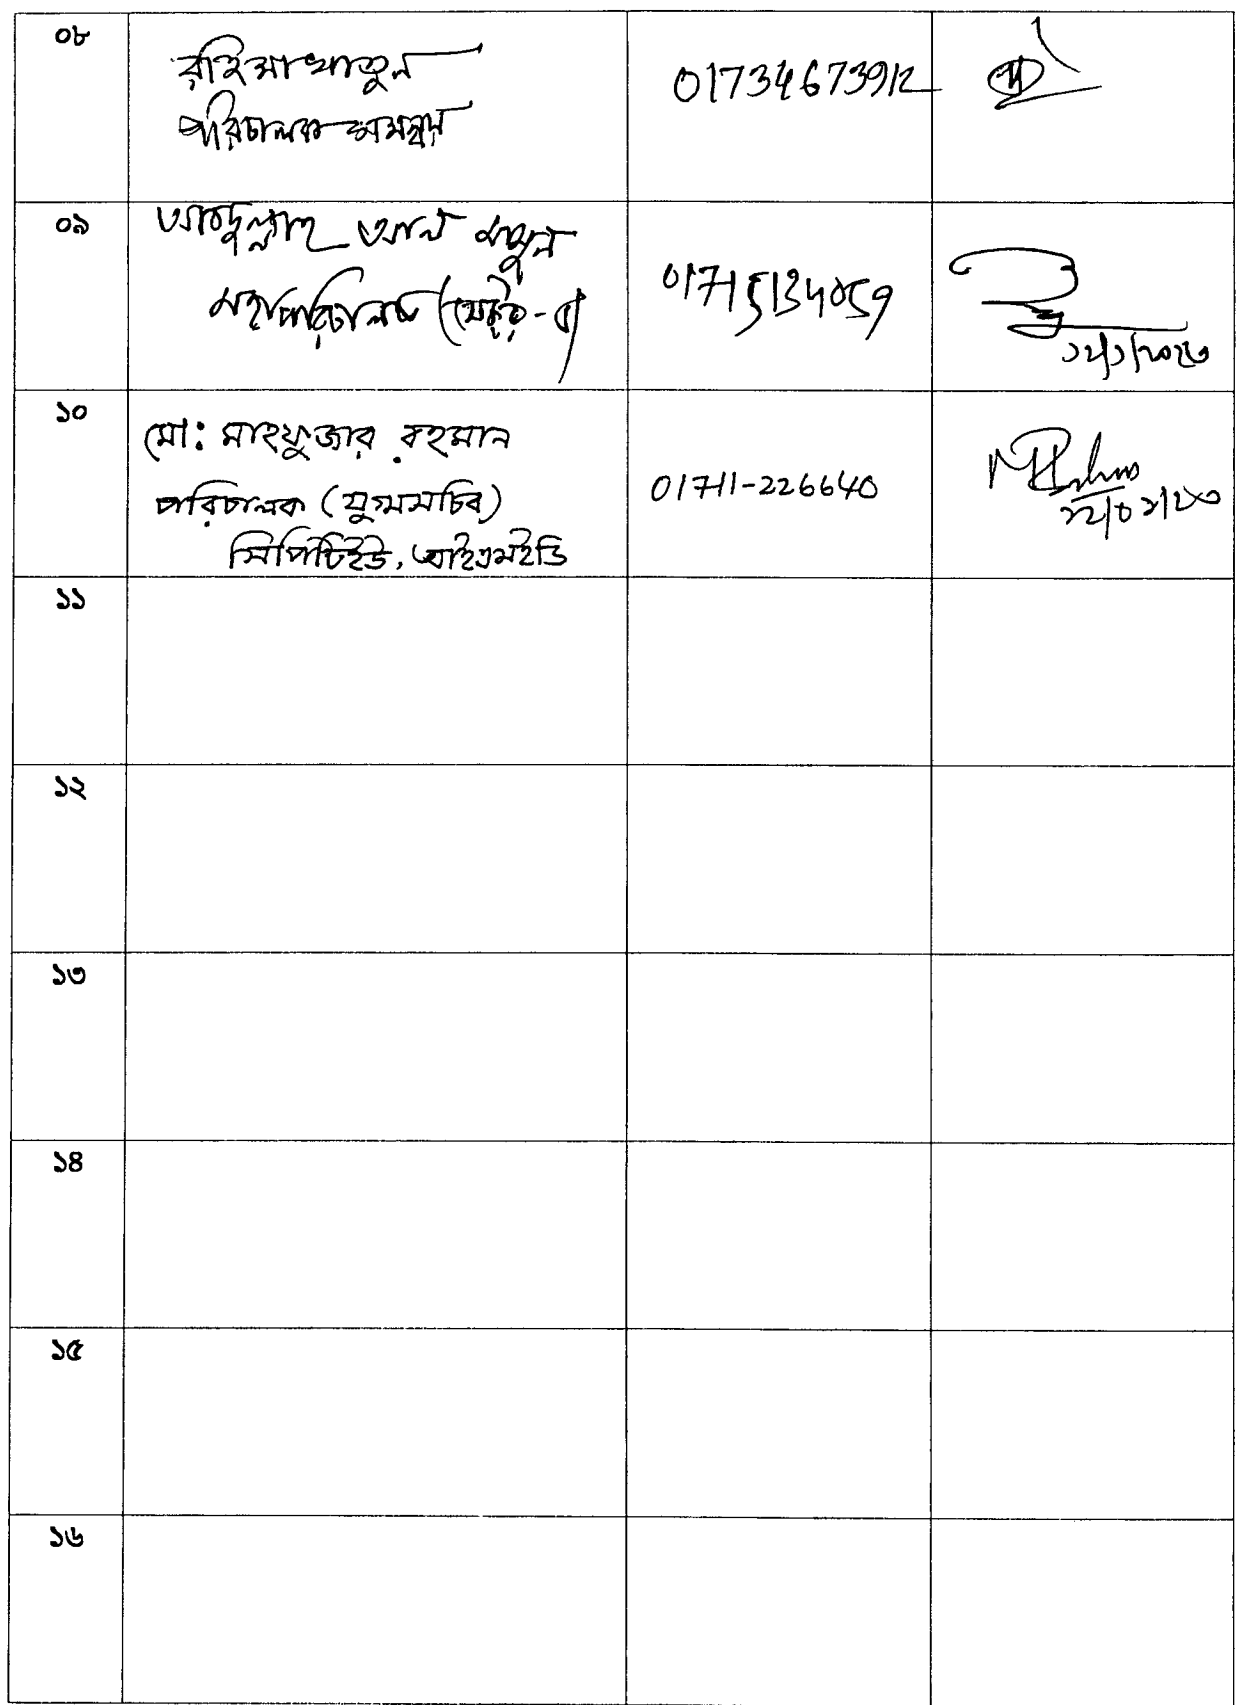 ০৮
রহিমা খাতুন
পরিচালক সমন্বয়
01734673912
০৯
আবদুল্লাহ আল মামুন
মহাপরিচালক (সেক্টর-৫)
01715134059
১২/১/২০২৩
১০
মো: মাহফুজার রহমান
পরিচালক (যুগ্মসচিব)
সিপিটিইউ, আইএমইডি
01711-226640
১১
১২
১৩
১৪
১৫
১৬